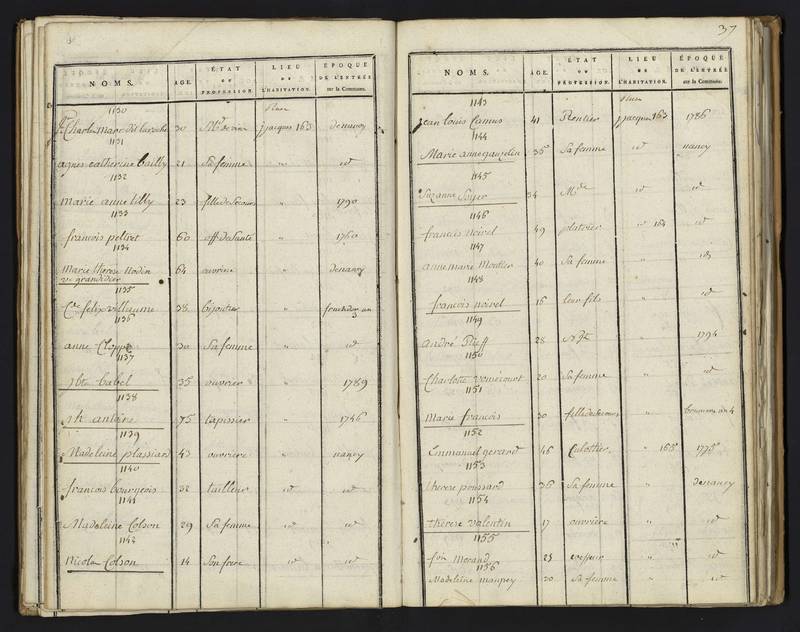 NOMS. AGE. ÉTAT OU PROFESSION. LIEU DE L'HABITATION. ÉPOQUE DE L'ENTRÉE sur la Commune.
1130 Rue
30 Md de vin j jacques 163 de nancy
1131
agnes catherine bailly 21 Sa femme " id
1132
marie anne lilly 23 fille de Secours " 1790
1133
francois peltret 60 off de Santé " 1760
1134
Marie therese Nodin 64 ouvriere " de nancy
ve grandidier
1135
Cde felix villaume 38 bijoutier " fructidor an 3
1136
anne Cloppe 30 Sa femme " id
1137
Jbte babel 35 ouvrier " 1789
1138
Jh antoine 75 tapissier " 1746
1139
Madeleine plassiard 43 ouvriere " nancy
1140
francois bourgeois 32 tailleur id id
1141
Madeleine Colson 29 Sa femme id id
1142
Nicolas Colson 14 Son frere id id
37
NOMS. AGE. ÉTAT OU PROFESSION. LIEU DE L'HABITATION. ÉPOQUE DE L'ENTRÉE sur la Commune.
1143 Rue
jean louis Camus 41 Rentier j jacques 163 1786
1144
Marie anne gauzelin 35 Sa femme id nancy
1145
Suzanne Soyer 34 Mde id id
1146
francois noirel 49 platrier id 164 id
1147
anne marie Montier 40 Sa femme " id
1148
francois noirel 16 leur fils " id
1149
andré 28 " 1794
1150
Charlotte vomecourt 20 Sa femme " id
1151
Marie francois 30 fille de secours " brumaire an 4
1152
Emmanuel gerard 46 Culottier " 165 1775
1153
therese poussard 36 Sa femme " de nancy
1154
therese valentin 17 ouvriere " id
1155
Morand 23 " id
1156
Madeleine maupey 20 Sa femme " id